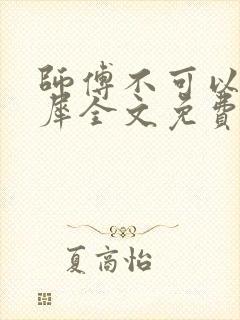 師傅不可以
犀全文免費
夏高怡